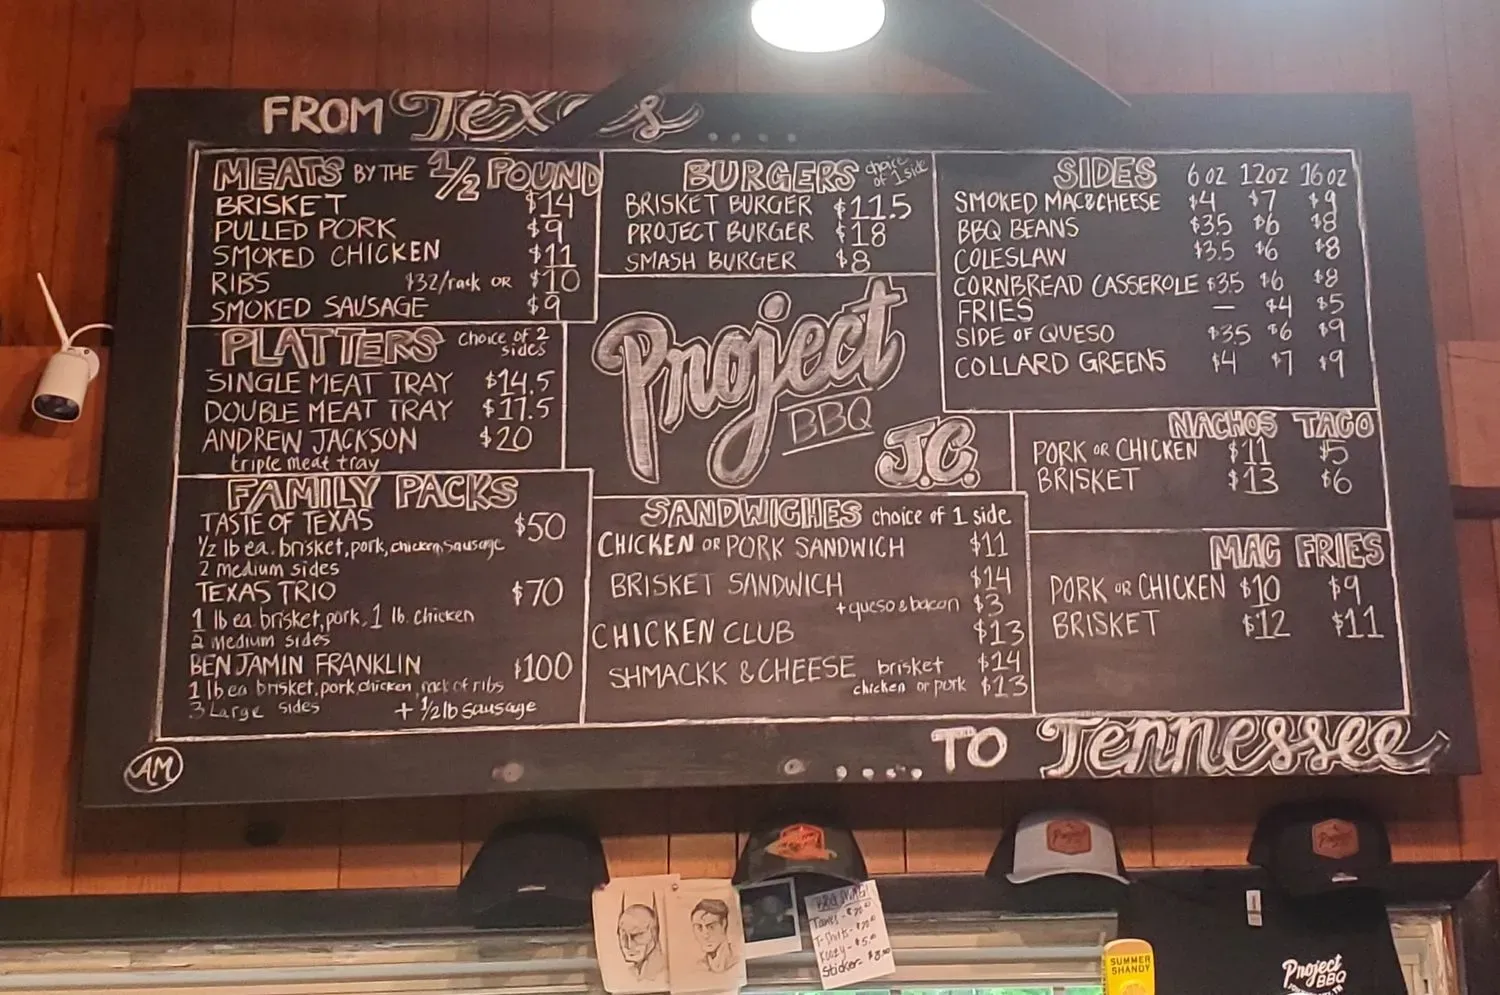 FROM Texas ....
MEATS BY THE 1/2 POUND
BRISKET $14
PULLED PORK $9
SMOKED CHICKEN $11
RIBS $32/rack OR $10
SMOKED SAUSAGE $9
PLATTERS choice of 2 sides
SINGLE MEAT TRAY $14.5
DOUBLE MEAT TRAY $17.5
ANDREW JACKSON $20
triple meat tray
FAMILY PACKS
TASTE OF TEXAS $50
1/2 lb ea. brisket, pork, chicken, sausage
2 medium sides
TEXAS TRIO $70
1 lb ea brisket, pork, 1 lb. chicken
2 medium sides
BENJAMIN FRANKLIN $100
1 lb ea brisket, pork, chicken, rack of ribs
3 Large sides + 1/2 lb sausage
BURGERS choice of 1 side
BRISKET BURGER $11.5
PROJECT BURGER $18
SMASH BURGER $8
Project
BBQ
J.C.
SANDWICHES choice of 1 side
CHICKEN OR PORK SANDWICH $11
BRISKET SANDWICH $14
+ queso & bacon $3
CHICKEN CLUB $13
SHMACKK & CHEESE brisket $14
chicken or pork $13
SIDES 6 oz 12oz 16 oz
SMOKED MAC&CHEESE $4 $7 $9
BBQ BEANS $3.5 $6 $8
COLESLAW $3.5 $6 $8
CORNBREAD CASSEROLE $3.5 $6 $8
FRIES — $4 $5
SIDE OF QUESO $3.5 $6 $9
COLLARD GREENS $4 $7 $9
NACHOS TACO
PORK OR CHICKEN $11 $5
BRISKET $13 $6
MAC FRIES
PORK OR CHICKEN $10 $9
BRISKET $12 $11
..... TO Tennessee
AM
T-Shirts-
Koozy - $5.
Sticker-
SUMMER
SHANDY
Project
BBQ